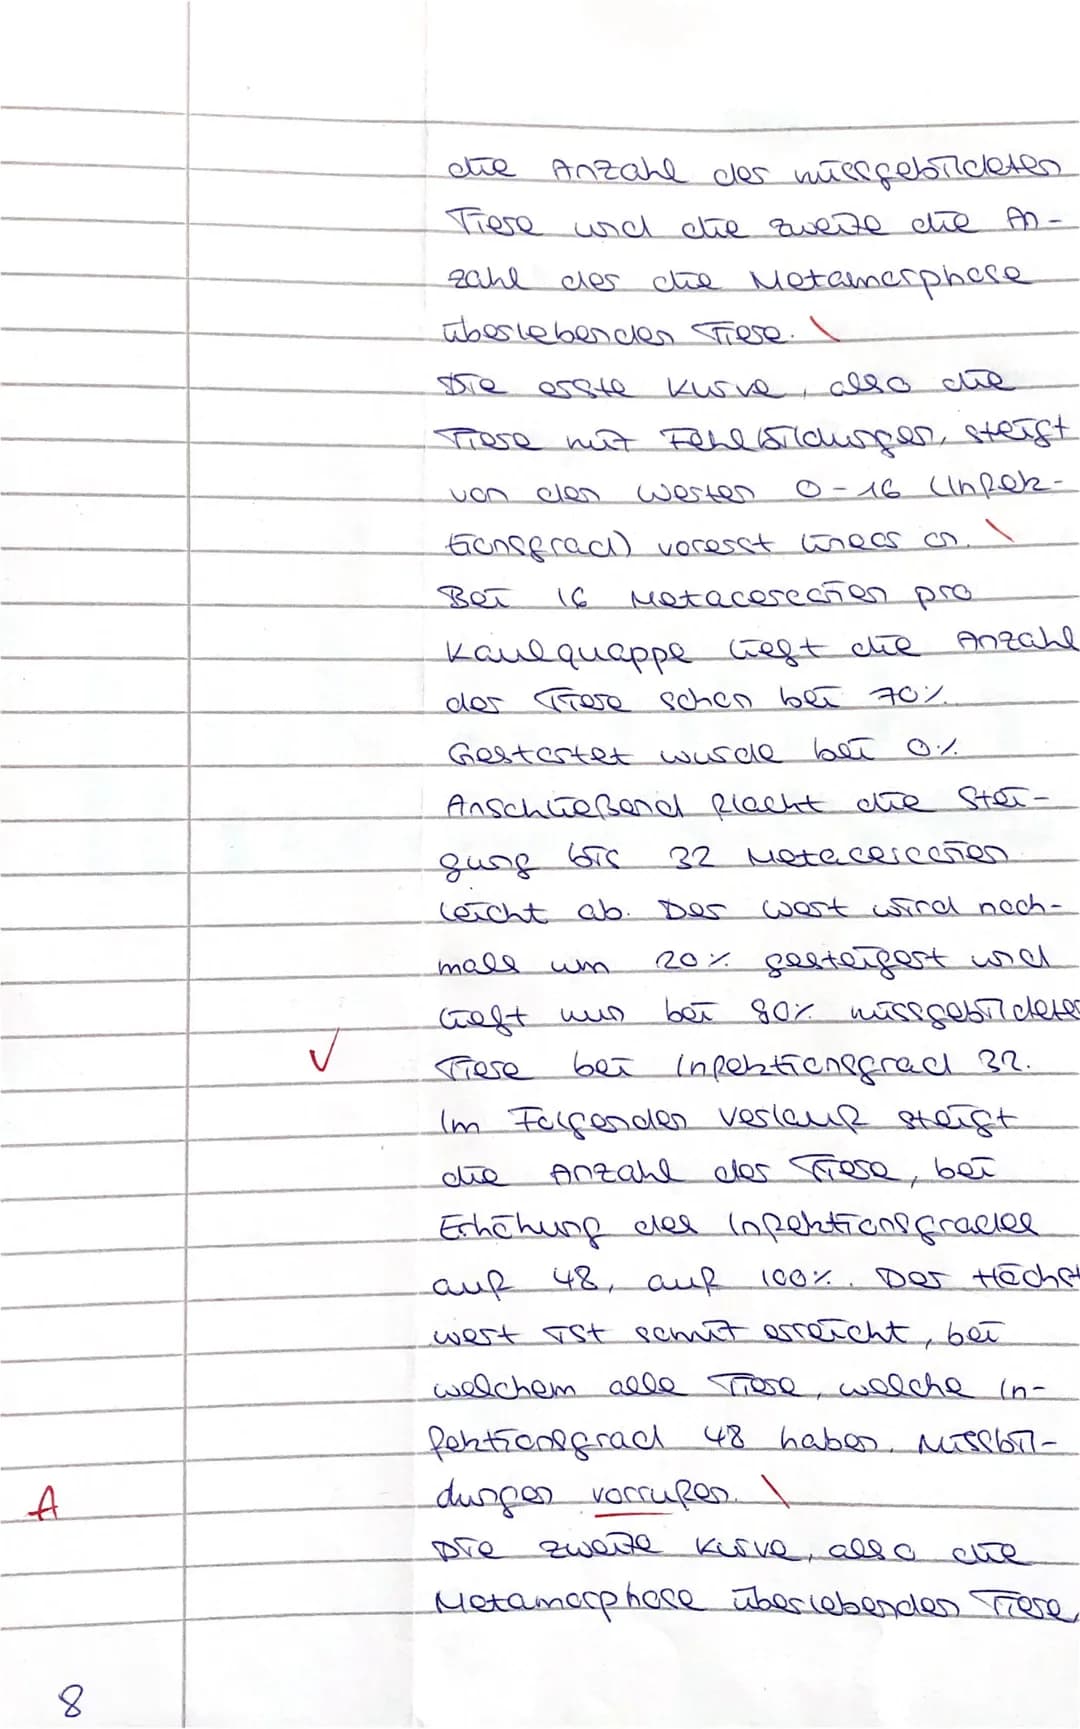 die Anzahl der missgebildeten
Tiere und die zweite die An-
zahl der die Metamorphose
überlebenden Tiere.
Die erste Kurve, also die
Tiere mit Fehlbildungen, steigt
von den Werten 0-16 (Infek-
tionsgrad) vorerst linear an.
Bei 16 Metacercarien pro
Kaulquappe liegt die Anzahl
der Tiere schon bei 70%.
Gestartet wurde bei 0%.
Anschließend flacht die Stei-
gung bis 32 Metacercarien
leicht ab. Der Wert wird noch-
mals um 20% gesteigert und
liegt nun bei 90% missgebildeter
Tiere bei Infektionsgrad 32.
Im Folgenden Verlauf steigt
die Anzahl der Tiere, bei
Erhöhung des Infektionsgrades
auf 48, auf 100%. Der Höchst
wert ist somit erreicht, bei
welchem alle Tiere, welche In-
fektionsgrad 48 haben, Missbil-
A dungen vorrufen.
Die zweite Kurve, also die
Metamorphose überlebenden Tiere,
8